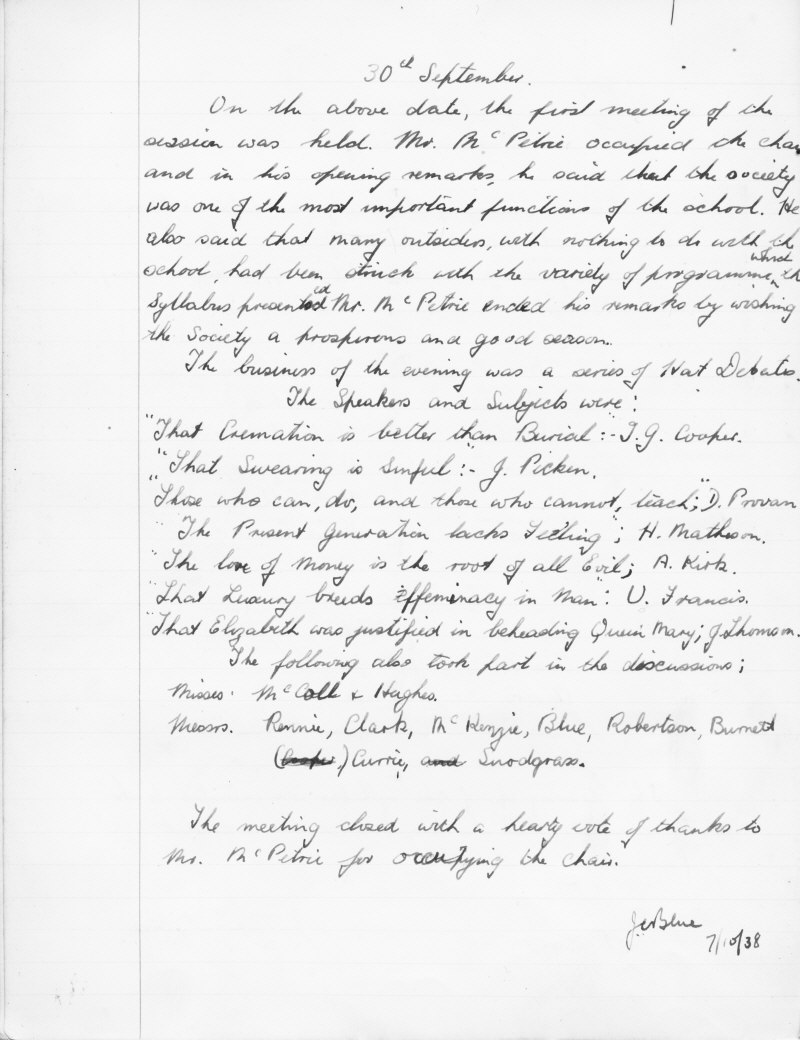 30th September.
On the above date, the first meeting of the
session was held. Mr. Mc Petrie occupied the chair
and in his opening remarks, he said that the society
was one of the most important functions of the school. He
also said that many outsiders, with nothing to do with the
school, had been struck with the variety of programme, which the
Syllabus presented. Mr. Mc Petrie ended his remarks by wishing
the Society a prosperous and good season.
The business of the evening was a series of Hat Debates.
The Speakers and Subjects were:
"That Cremation is better than Burial":- J.G. Cooper.
"That Swearing is Sinful":- J. Picken.
"Those who can, do, and those who cannot, teach;" D. Provan
"The Present Generation lacks Feeling"; H. Matheson.
"The love of Money is the root of all Evil; A. Kirk.
"That Luxury breeds Effeminacy in Man": U. Francis.
"That Elizabeth was justified in beheading Queen Mary; J. Thomson.
The following also took part in the discussions;
Misses. McColl & Hughes.
Messrs. Rennie, Clark, McKenzie, Blue, Robertson, Burnett
(Cooper,) Currie, and Snodgrass.
The meeting closed with a hearty vote of thanks to
Mr. Mc Petrie for occupying the chair.
Blue
7/10/38